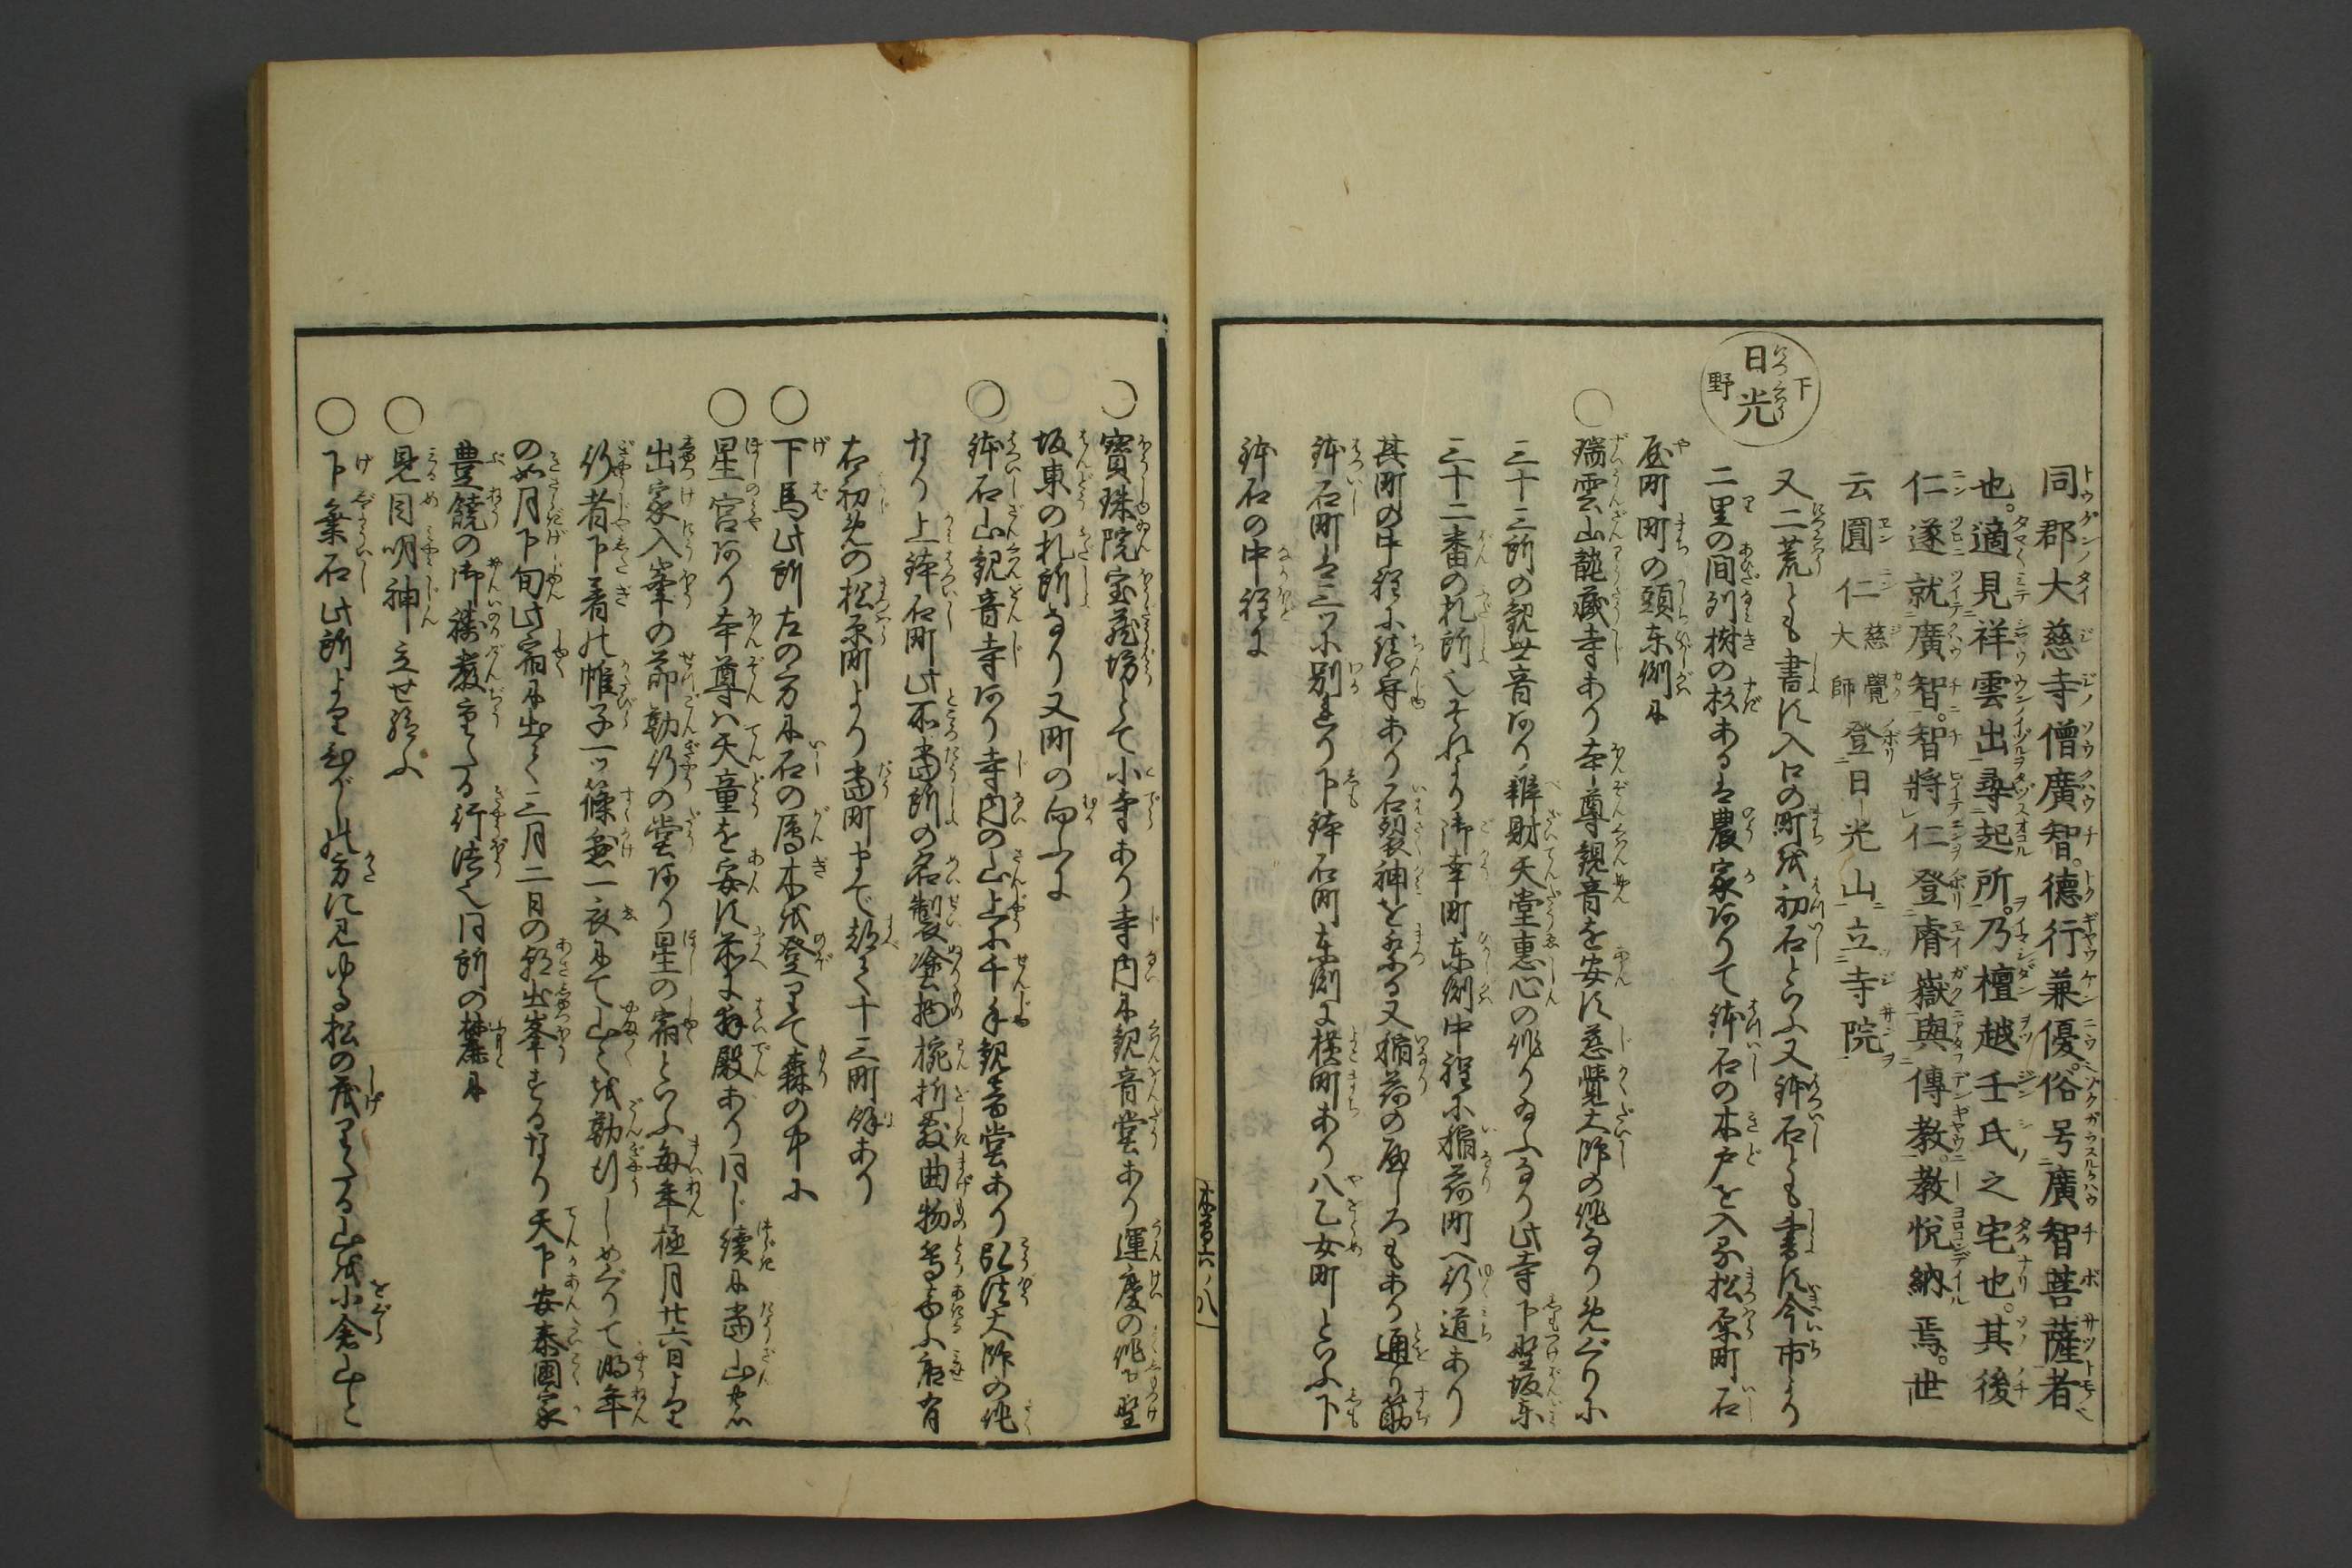 同郡大慈寺僧廣智。德行兼優。俗号廣智菩薩者
也。適見祥雲出。尋起所。乃檀越壬氏之宅也。其後
仁遂就廣智。智將仁登睿嶽與傳教。教悦納焉。世
云圓仁慈覺大師登日光山立寺院
日光
下野
又二荒とも書に入口の町を初石といふ又鉢石とも書に今市より
二里の間列樹の杉あるは農家ありて鉢石の木戸を入る松原町石
屋町町の頭东側に
○瑞雲山龍蔵寺あり本尊観音を安に慈覺大师の作なり
三十三所の観世音あり辨財天堂惠心の作り此寺下野坂东
三十二番の札所也それより御幸町东側中程に稲荷町へ行道あり
其町の中程に鎮守あり石裂神を祭る又稲荷の屋しろもあり通り筋
鉢石町は三ツに別れり下鉢石町东側に横町あり八乙女町といふ下
鉢石の中程に
木曽六ノ八
○寶珠院宝蔵坊とて小寺あり寺内に観音堂あり運慶の作下野
坂東の札所なり又町の向ふに
○鉢石山観音寺あり寺内の山上に千手観音堂あり弘法大师の作
なり上鉢石町此所當所の名製塗物椀折敷曲物等商ふ店有
右初めの松原町より當町まで都て十三町餘あり
○下馬此所左の方に石の鴈木を登りて森の中に
○星宮あり本尊ハ天童を安に前に拜殿あり同じ續に當山
出家入峯の節勤行の堂あり星の宿といふ毎年極月廿六日より
行者下着の帷子一ツ篠懸一衣にて山々を勤行しめぐりて明年
の如月下旬此宿に出て三月二日の朝出峯するなり天下安泰國家
豊饒の御祷教重たる行法也同所の麓に
○見目明神立せ給ふ
○下乗石此所より向がしの方に見ゆる松の茂りたる山を小倉山と